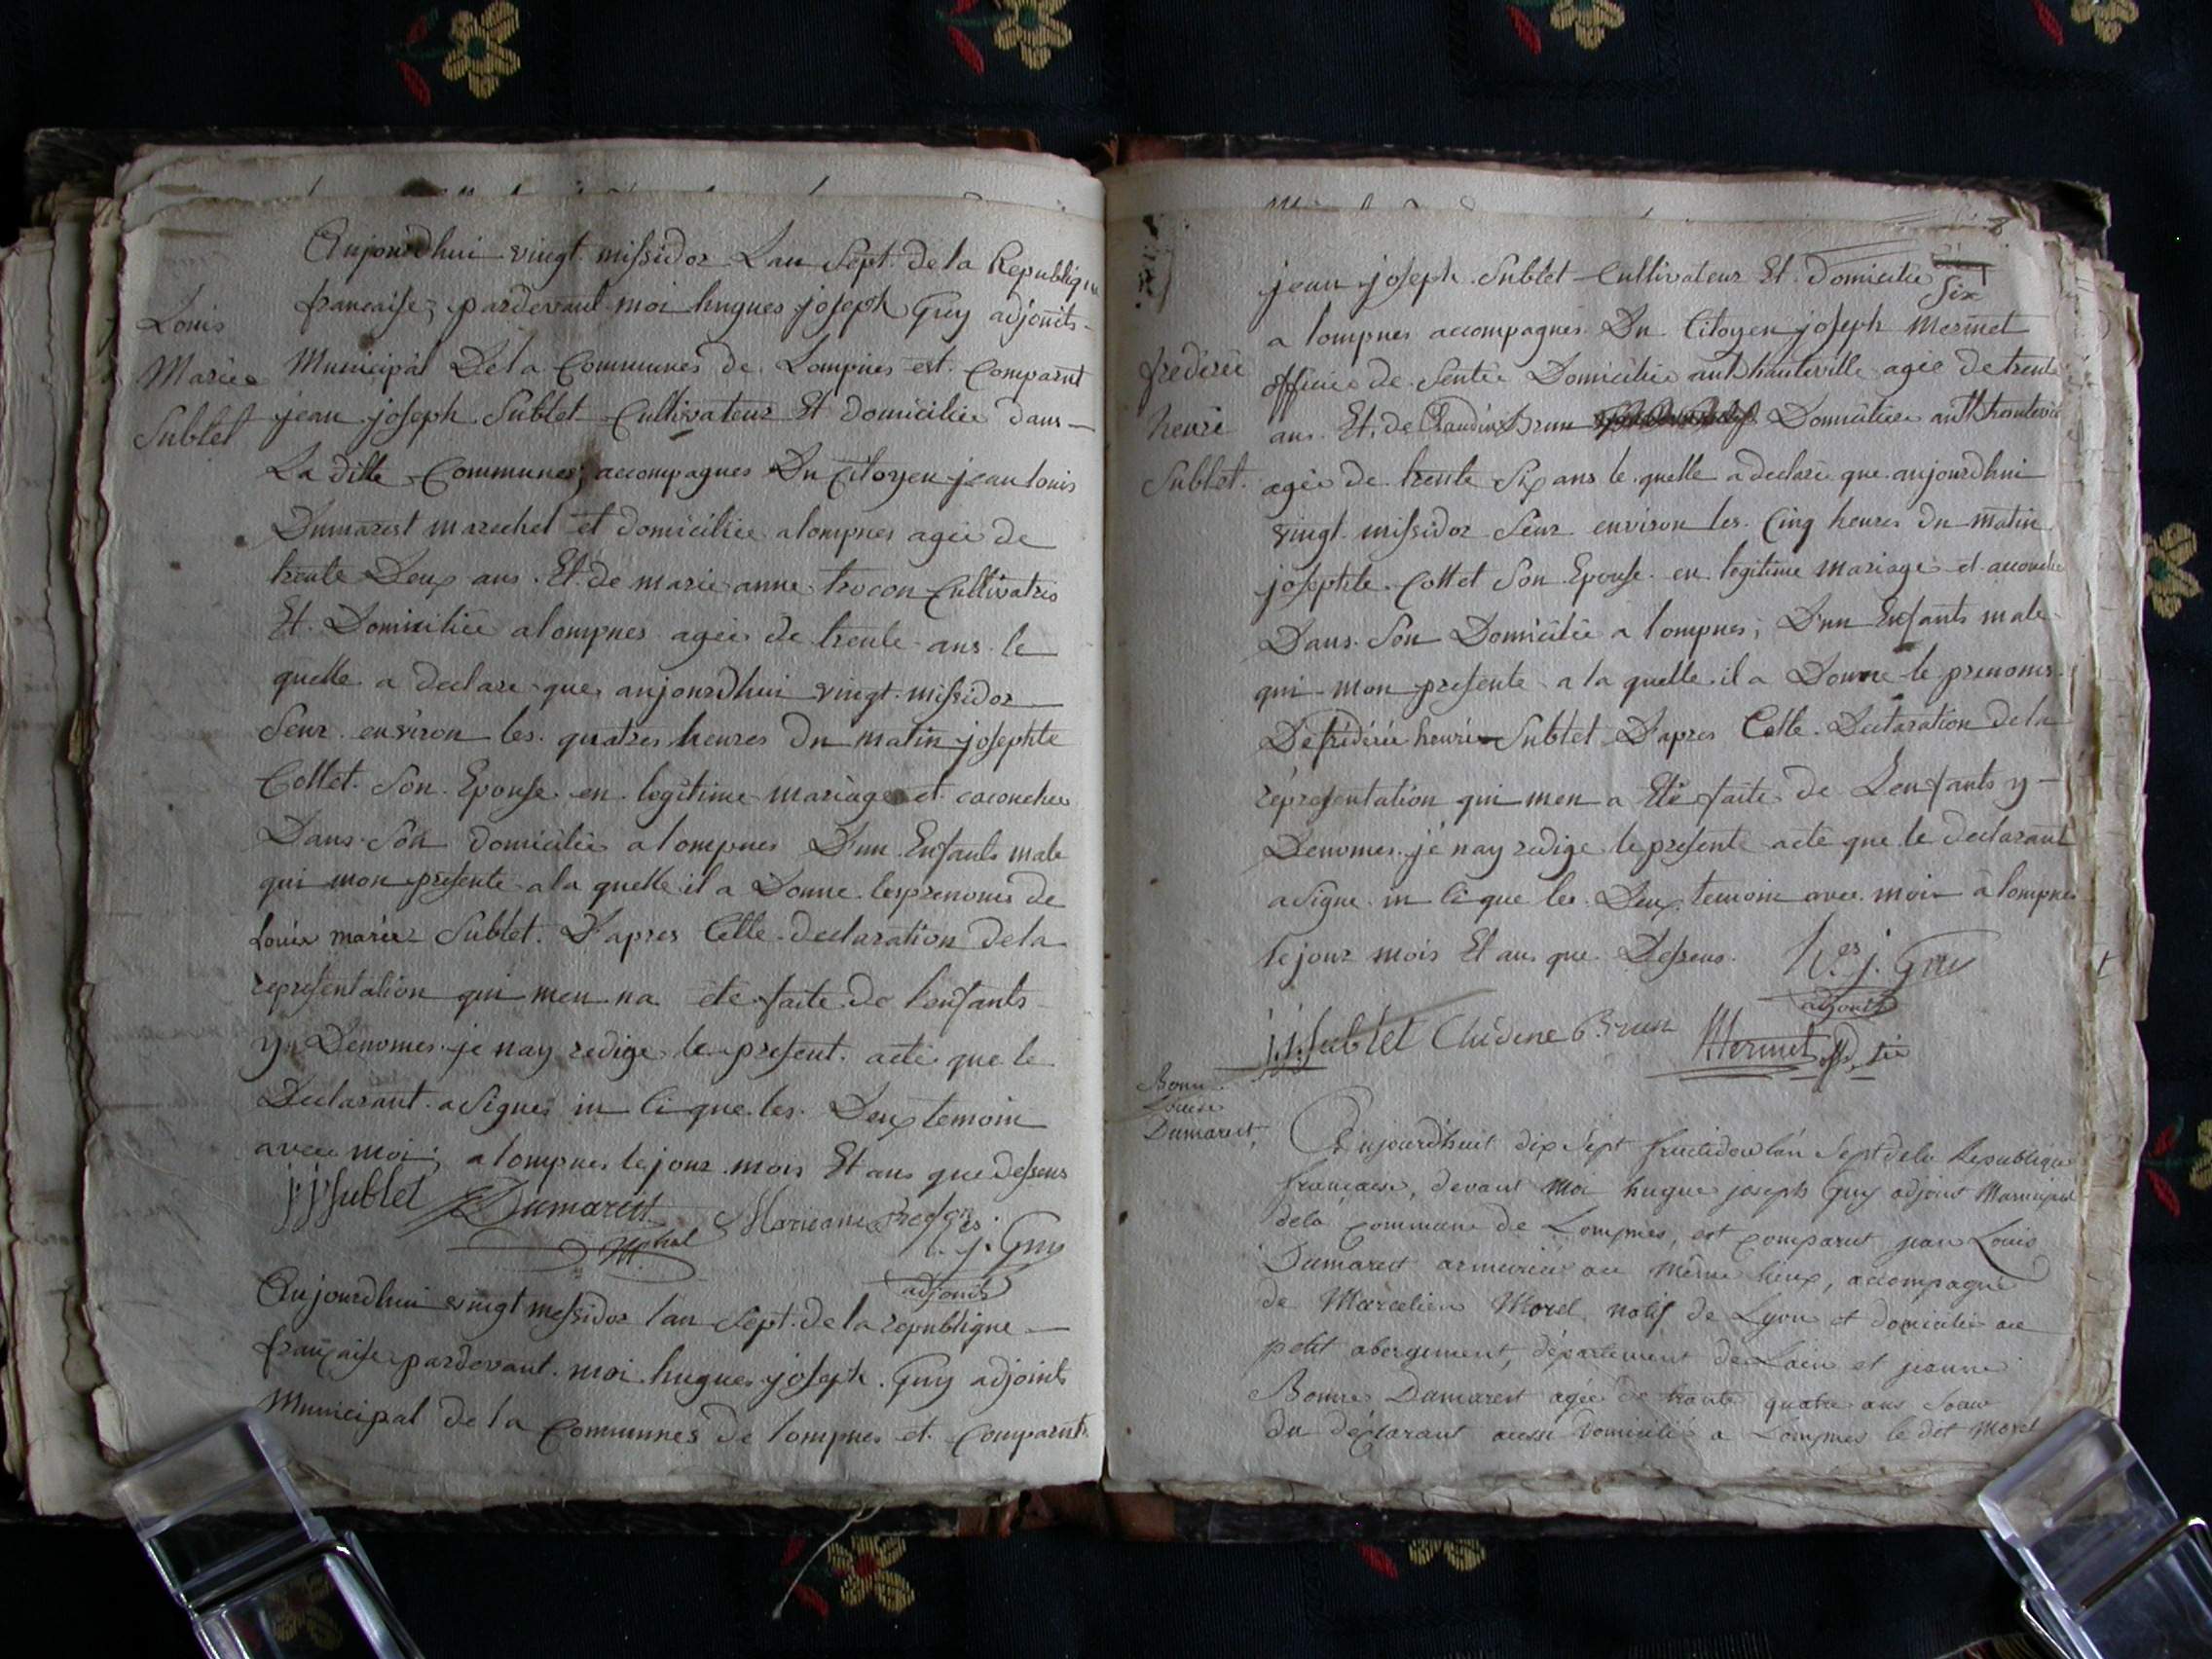 Louis
Marie
Sublet
Aujourdhui vingt missidor Lan Sept de la Republique
francaise, pardevant moi hugues joseph Guy adjoints
Municipal Dela Communes de Lompnes est Comparut
jean joseph Sublet Cultivateur Et domiciliée dans
La ditte Communes, accompagnes Du Citoyen jean louis
Dumarest marechel et domiciliée alompnes agée de
trente Deux ans. Et de marie anne trocon Cultivatris
Et Domiciliée alompnes agée de trente ans le
quelle a declare que aujourdhui vingt missidor
Seur environ les quatres heures Du matin josephte
Collet Son Epouse en legitime mariage et cacouchee
Dans Son domicilée a lompnes D'un Enfants male
qui mon presente a la quelle il a Donne les prenoms de
Louis marie Sublet. D'apres Cette declaration de la
representation qui meu na été faite de l'enfants
y Denomes je nay redige le present acte que le
Declarant a Signes in Ci que les Deux temoin
avec moi, a lompnes le jour mois Et ans que dessus
jjSublet Dumarest Marieane
M.hal
h.es j. Guy
adjoints
Aujourdhui vingt messidor l'an Sept de la republique
française pardevant moi hugues joseph Guy adjoints
Municipal de la Communnes de lompnes et Comparut
Six
frederic
henri
Sublet.
jean joseph Sublet Cultivateur Et domicilie
a lompnes accompagnes Du Citoyen joseph Mermet
officie de Sentée Domiciliée aut hauteville agée de trente
ans Et de Claudine Brun Domiciliée aut
agée de trente Six ans le quelle a declarée que aujourdhui
vingt missidor Seur environ les Cinq heures du matin
josephte Collet Son Epouse en legitime mariage et accouchee
Dans Son Domicilée a lompnes, D'un Enfants male
qui mon presente a la quelle il a Donne le prenoms
De frédéric henri Sublet D'apres Cette Declaration de la
représentation qui men a Eté faite de L'enfants y
Denomes je nay redige le presente acte que le declarant
a Signe in Ci que les Deux temoin avec moi a lompnes
le jour mois Et ans que Dessus.
h.es j. Guy
adjoints
j.j.Sublet Clùdene Brun Mermet
Bonne
Louise
Dumarest,
Aujourdhuit dix Sept fructidor l'an Sept de la Republique
francaise, devant Moi hugue joseph Guy adjoint Municipal
de la commune de Lompnes, est comparut jean Louis
Dumarest armurier au même lieux, accompagné
de Marcelien Morel natif de Lyon et domicilié au
petit abergement, département de Lain et jeanne
Bonne Dumarest agée de trante quatre ans Soeur
du déclarant aussi Domicilié a Lompnes le dit Morel